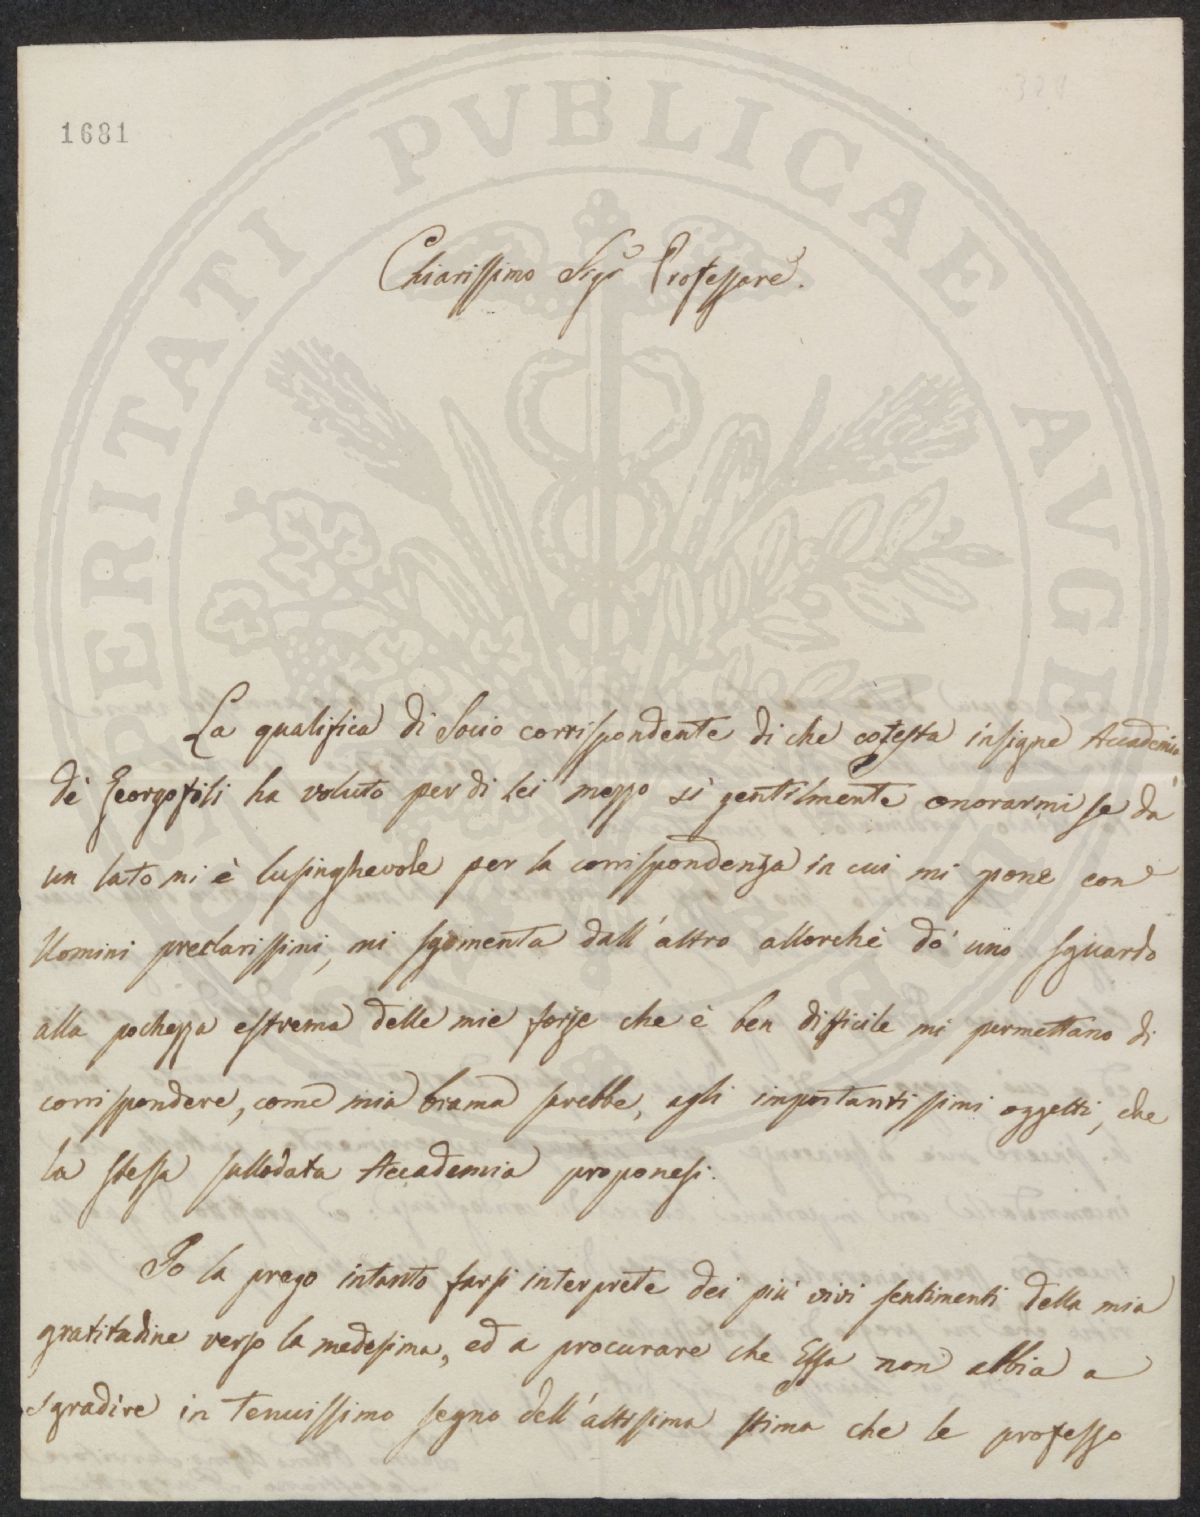 1681
Chiarissimo Sigr Professore.
La qualifica di Socio corrispondente di che cotesta insigne Accademia
de' Georgofili ha voluto per di Lei mezzo sì gentilmente onorarmi se da
un lato mi è lusinghevole per la corrispondenza in cui mi pone con
Uomini preclarissimi, mi sgomenta dall'altro allorchè dò uno sguardo
alla pochezza estrema delle mie forze che è ben difficile mi permettano di
corrispondere, come mia brama sarebbe, agli importantissimi oggetti, che
la stessa sullodata Accademia proponesi.
Io la prego intanto farsi interprete dei più vivi sentimenti della mia
gratitudine verso la medesima, ed a procurare che Essa non abbia a
sgradire in tenuissimo segno dell'altissima stima che le professo
PROSPERITATI PVBLICAE AVGE